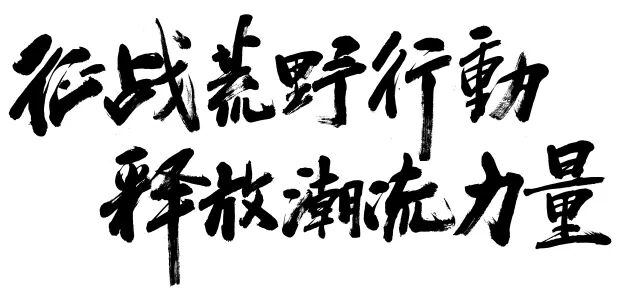 征战荒野行動
释放潮流力量